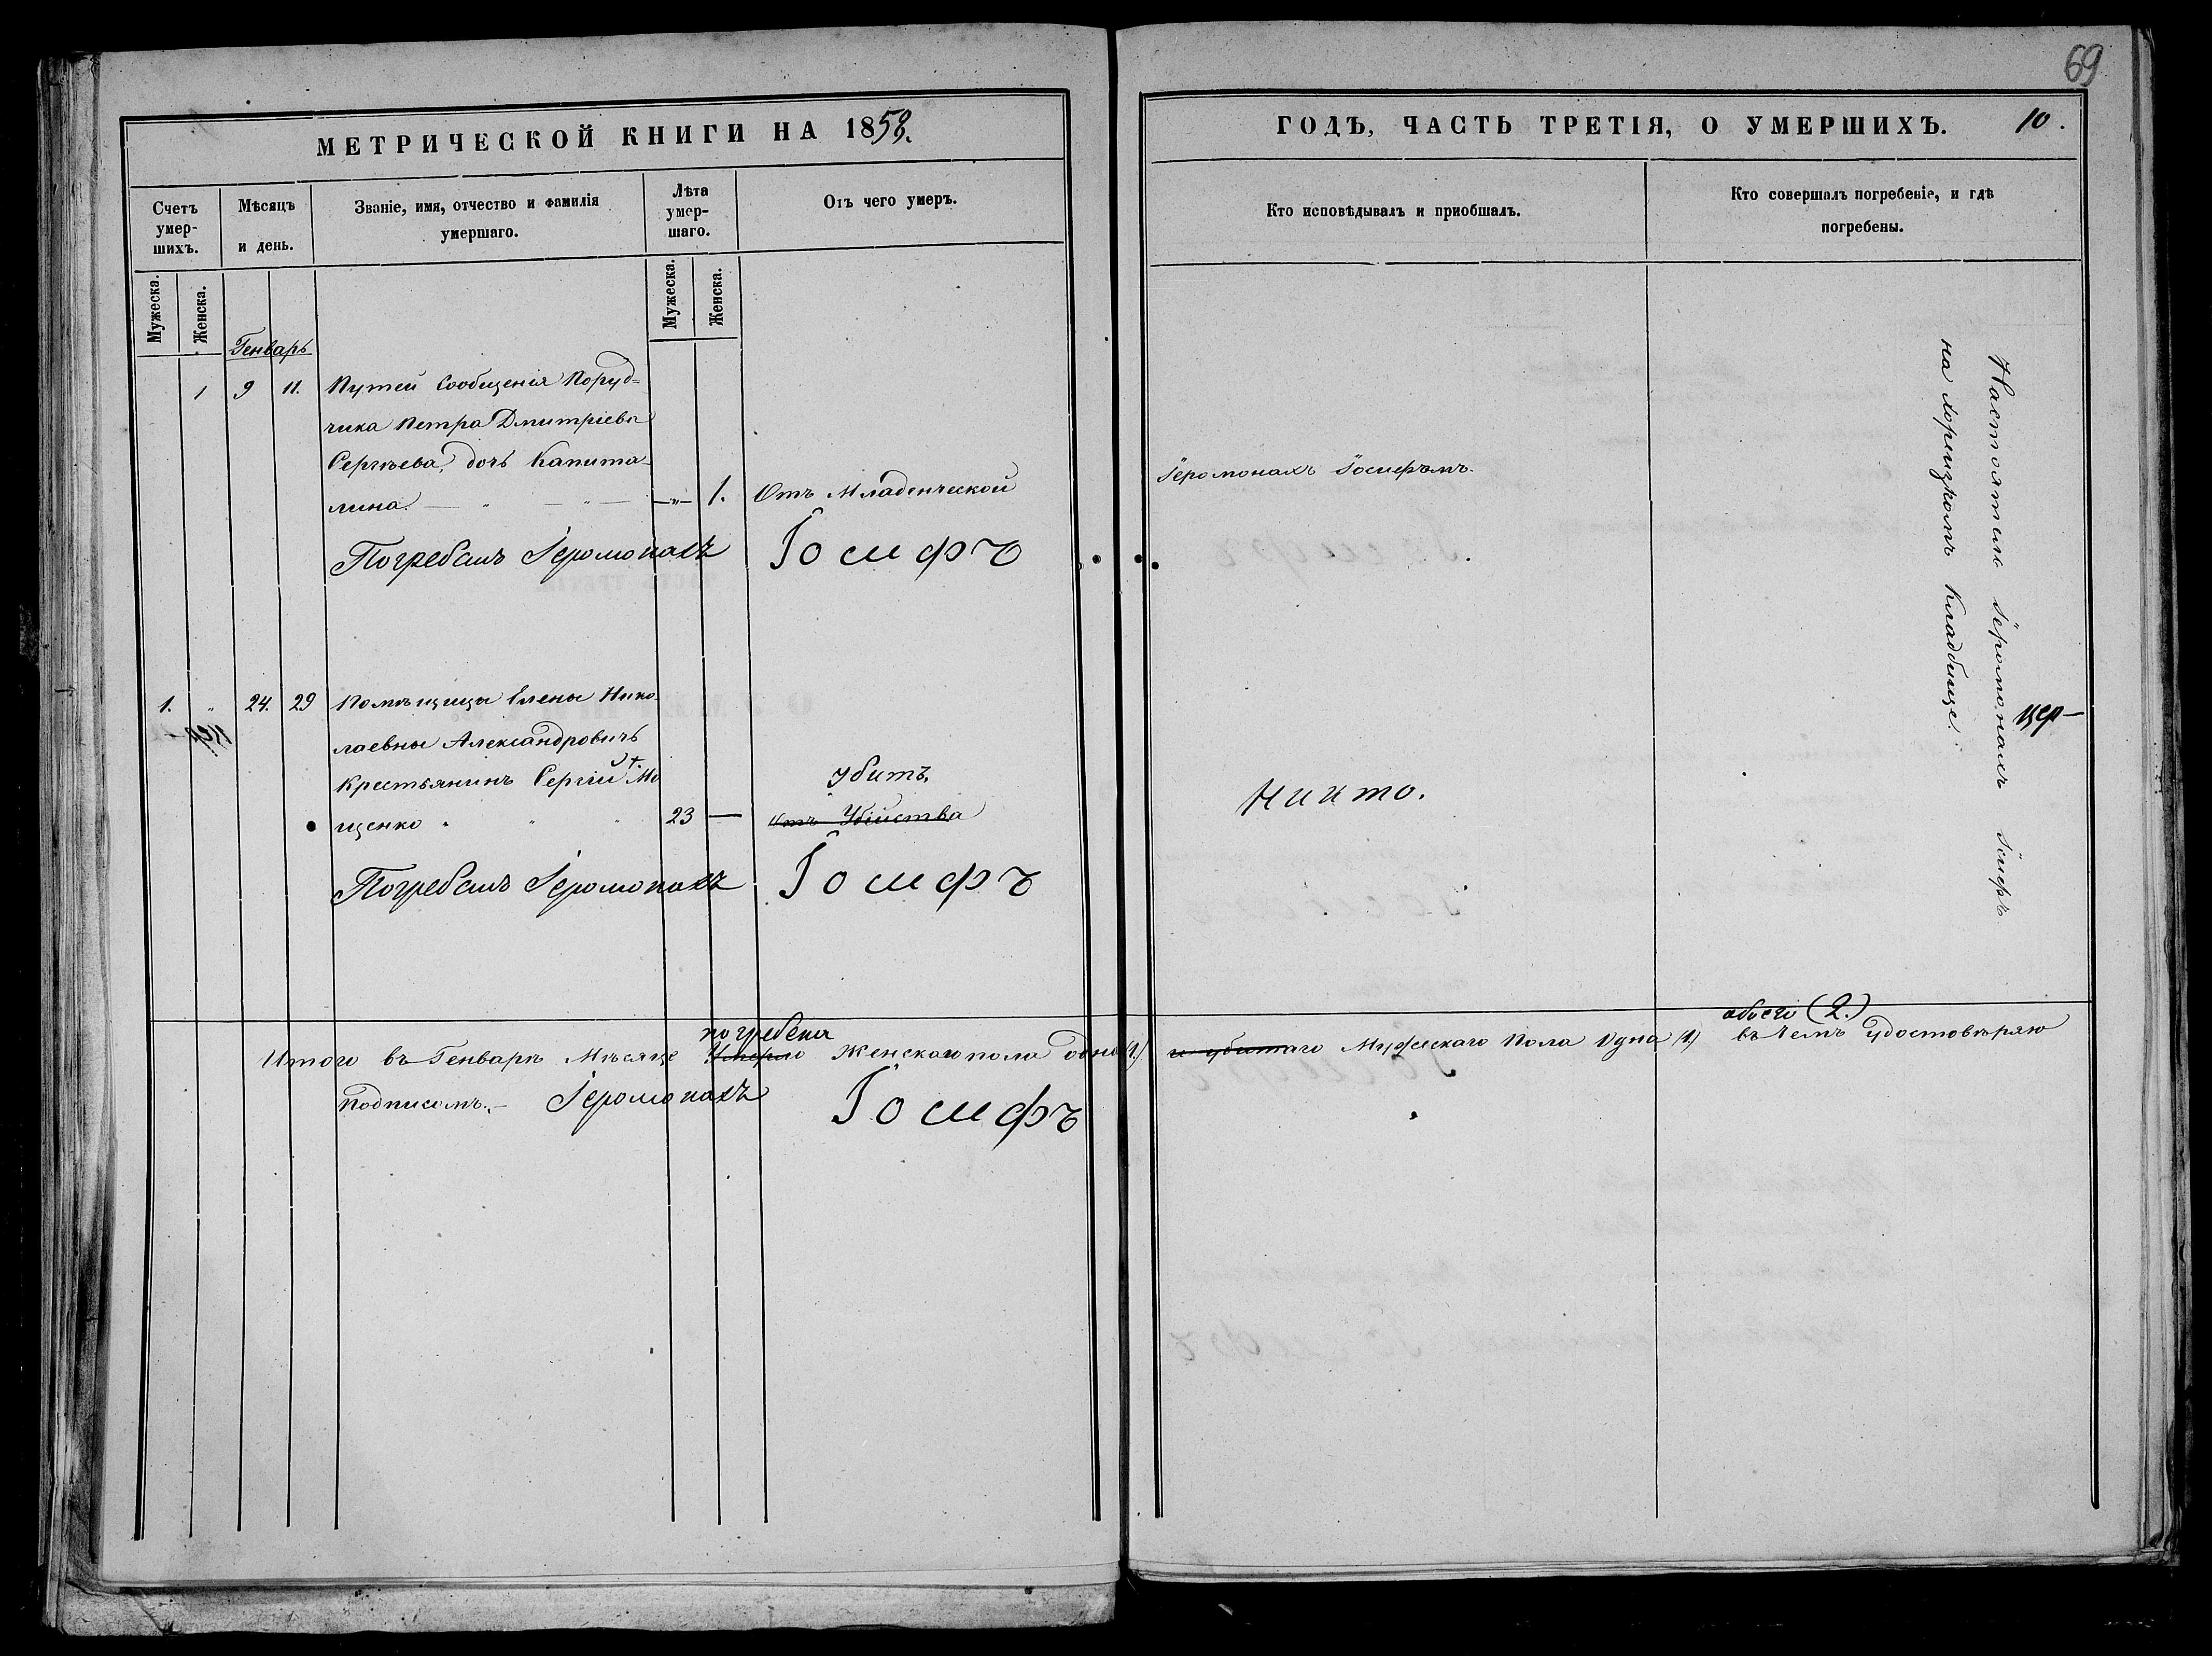 69
МЕТРИЧЕСКОЙ КНИГИ НА 1858.
ГОДЪ, ЧАСТЬ ТРЕТІЯ, О УМЕРШИХЪ. 10.
Счетъ умер-
шихъ.
Мѣсяцъ
и день.
Званіе, имя, отчество и фамилія
умершаго.
Лѣта
умер-
шаго.
Отъ чего умеръ.
Кто исповѣдывалъ и приобщалъ.
Кто совершалъ погребеніе, и гдѣ
погребены.
Мужеска.
Женска.
Мужеска.
Женска.
Генварь
1 9 11. Путей Сообщенія Поруд=
чика Петра Дмитріева
Сергѣева, дочь Капита-
лина. — " — " — — " — 1. Отъ Младенческой
Іеромонахъ Іосифомъ.
Погребалъ Іеромонахъ Іосифъ
1. " 24. 29 Помѣщицы Елены Нико-
лаевны Александровичь
Крестьянинъ Сергій Мо
Убитъ.
щенко " " 23 — Отъ Убійства
Никто.
Погребалъ Іеромонахъ Іосифъ
Настоятель Іеромонахъ Іосифъ
на Кладбище.
цер-
погребена
обоего (2.)
Итого въ Генварѣ Мѣсяце Умерло Женскаго пола одна (1.) и убитаго Мужескаго Пола Одна (1.) въ Чемъ удостовѣряю
подписомъ.- Іеромонахъ Іосифъ